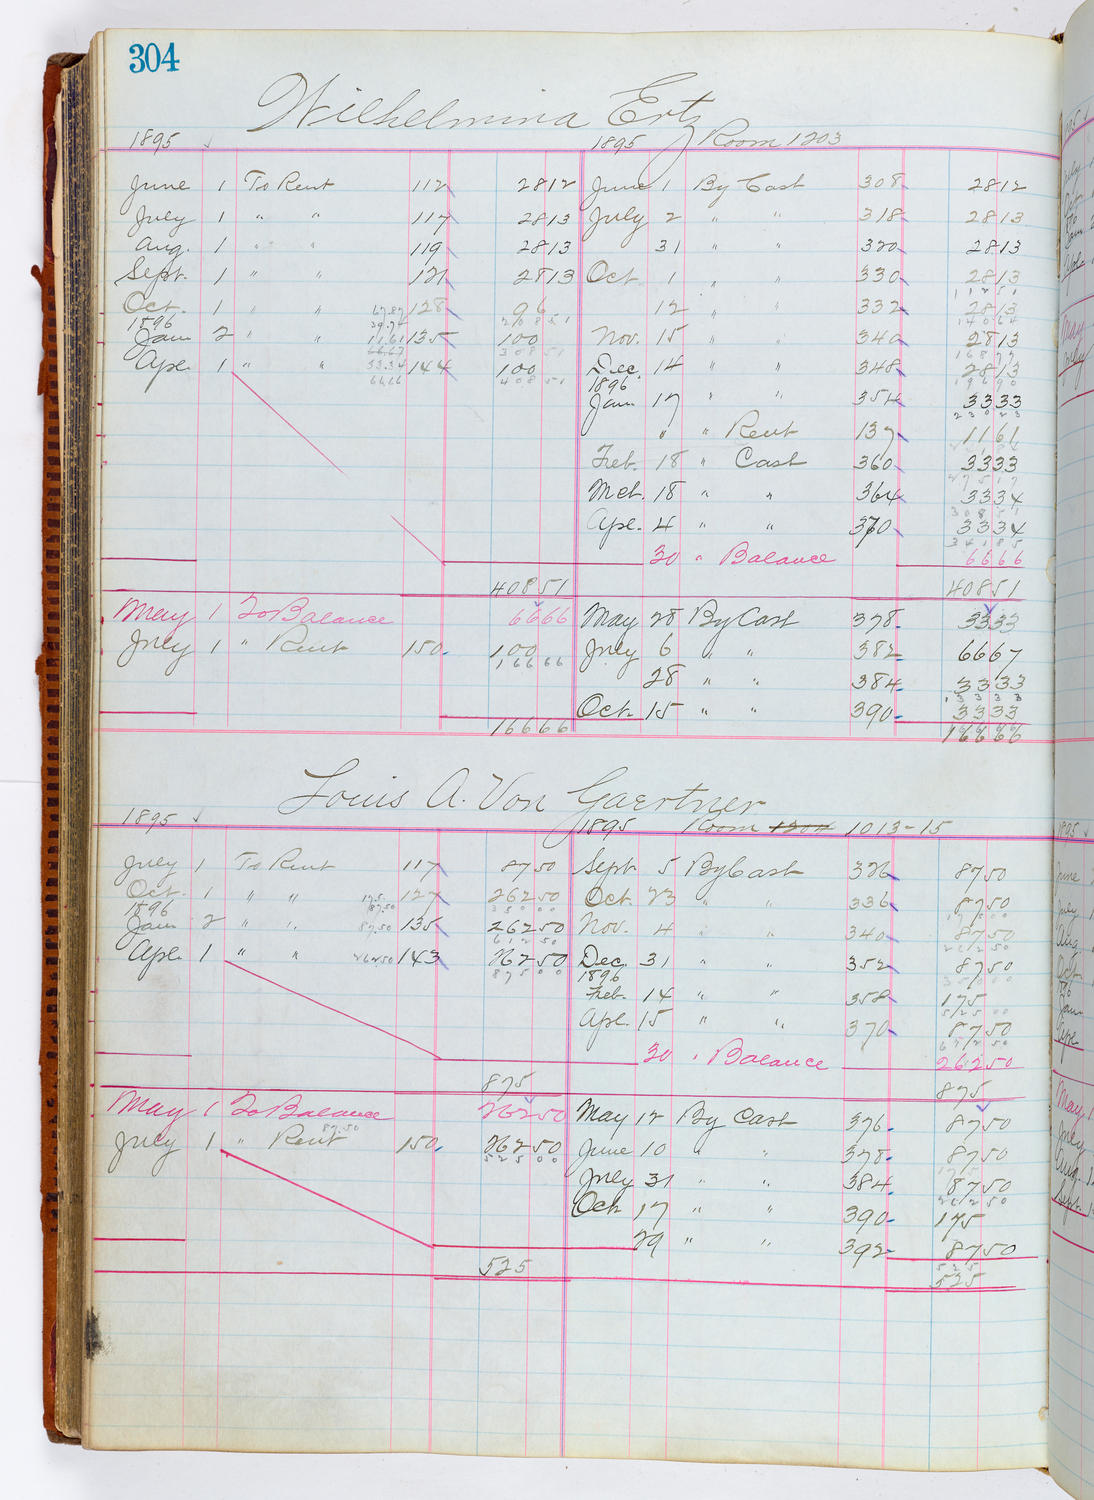 304
Wilhelmina Ertz
1895 1895 Room 1203
June 1 To Rent 112 28 12 June 1 By Cash 308 28 12
July 1 " " 117 28 13 July 2 " " 318 28 13
Aug. 1 " " 119 28 13 31 " " 320 28 13
Sept. 1 " " 121 28 13 Oct 1 " " 330 28 13
Oct. 1 " " 128 96 12 " 332 28 13
1896
Jan 2 " " 11.61 135 100 Nov. 15 " " 340 28 13
Apl. 1 " " 33.34 144 100 Dec. 14 " " 348 28 13
66.66 408 51 1896
Jan 17 " " 354 33 33
" " Rent 137 11 61
Feb. 18 " Cash 360 33 33
Mch. 18 " " 364 33 34
Apl. 4 " " 370 33 34
30 " Balance 66 66
408 51 408 51
May 1 To Balance 66 66 May 28 By Cash 378 33 33
July 1 " Rent 150 100 July 6 " " 382 66 67
166 66
28 " " 384 33 33
Oct. 15 " " 390 33 33
166 66 166 66
Louis A. Von Gaertner
1895 1895 Room 1204 1013-15
July 1 To Rent 117 87 50 Sept 5 By Cash 326 87 50
Oct. 1 " " 127 262 50 Oct. 23 " " 336 87 50
1896 87.50 350 00 175 00
Jan 2 " " 87.50 135 262 50 Nov. 4 " " 340 87 50
612 50 262 50
Apl. 1 " " 262.50 143 262 50 Dec. 31 " " 352 87 50
875 00 1896 350 00
Feb. 14 " " 358 175
525 00
Apl. 15 " " 370 87 50
612 50
30 " Balance 262 50
875 875
May 1 To Balance 262 50 May 12 By Cash 376 87 50
87.50
July 1 " Rent 150 262 50 June 10 " " 378 87 50
525 00 175
July 31 " " 384 87 50
262 50
Oct 17 " " 390 175
29 " " 392 87 50
525
525 525